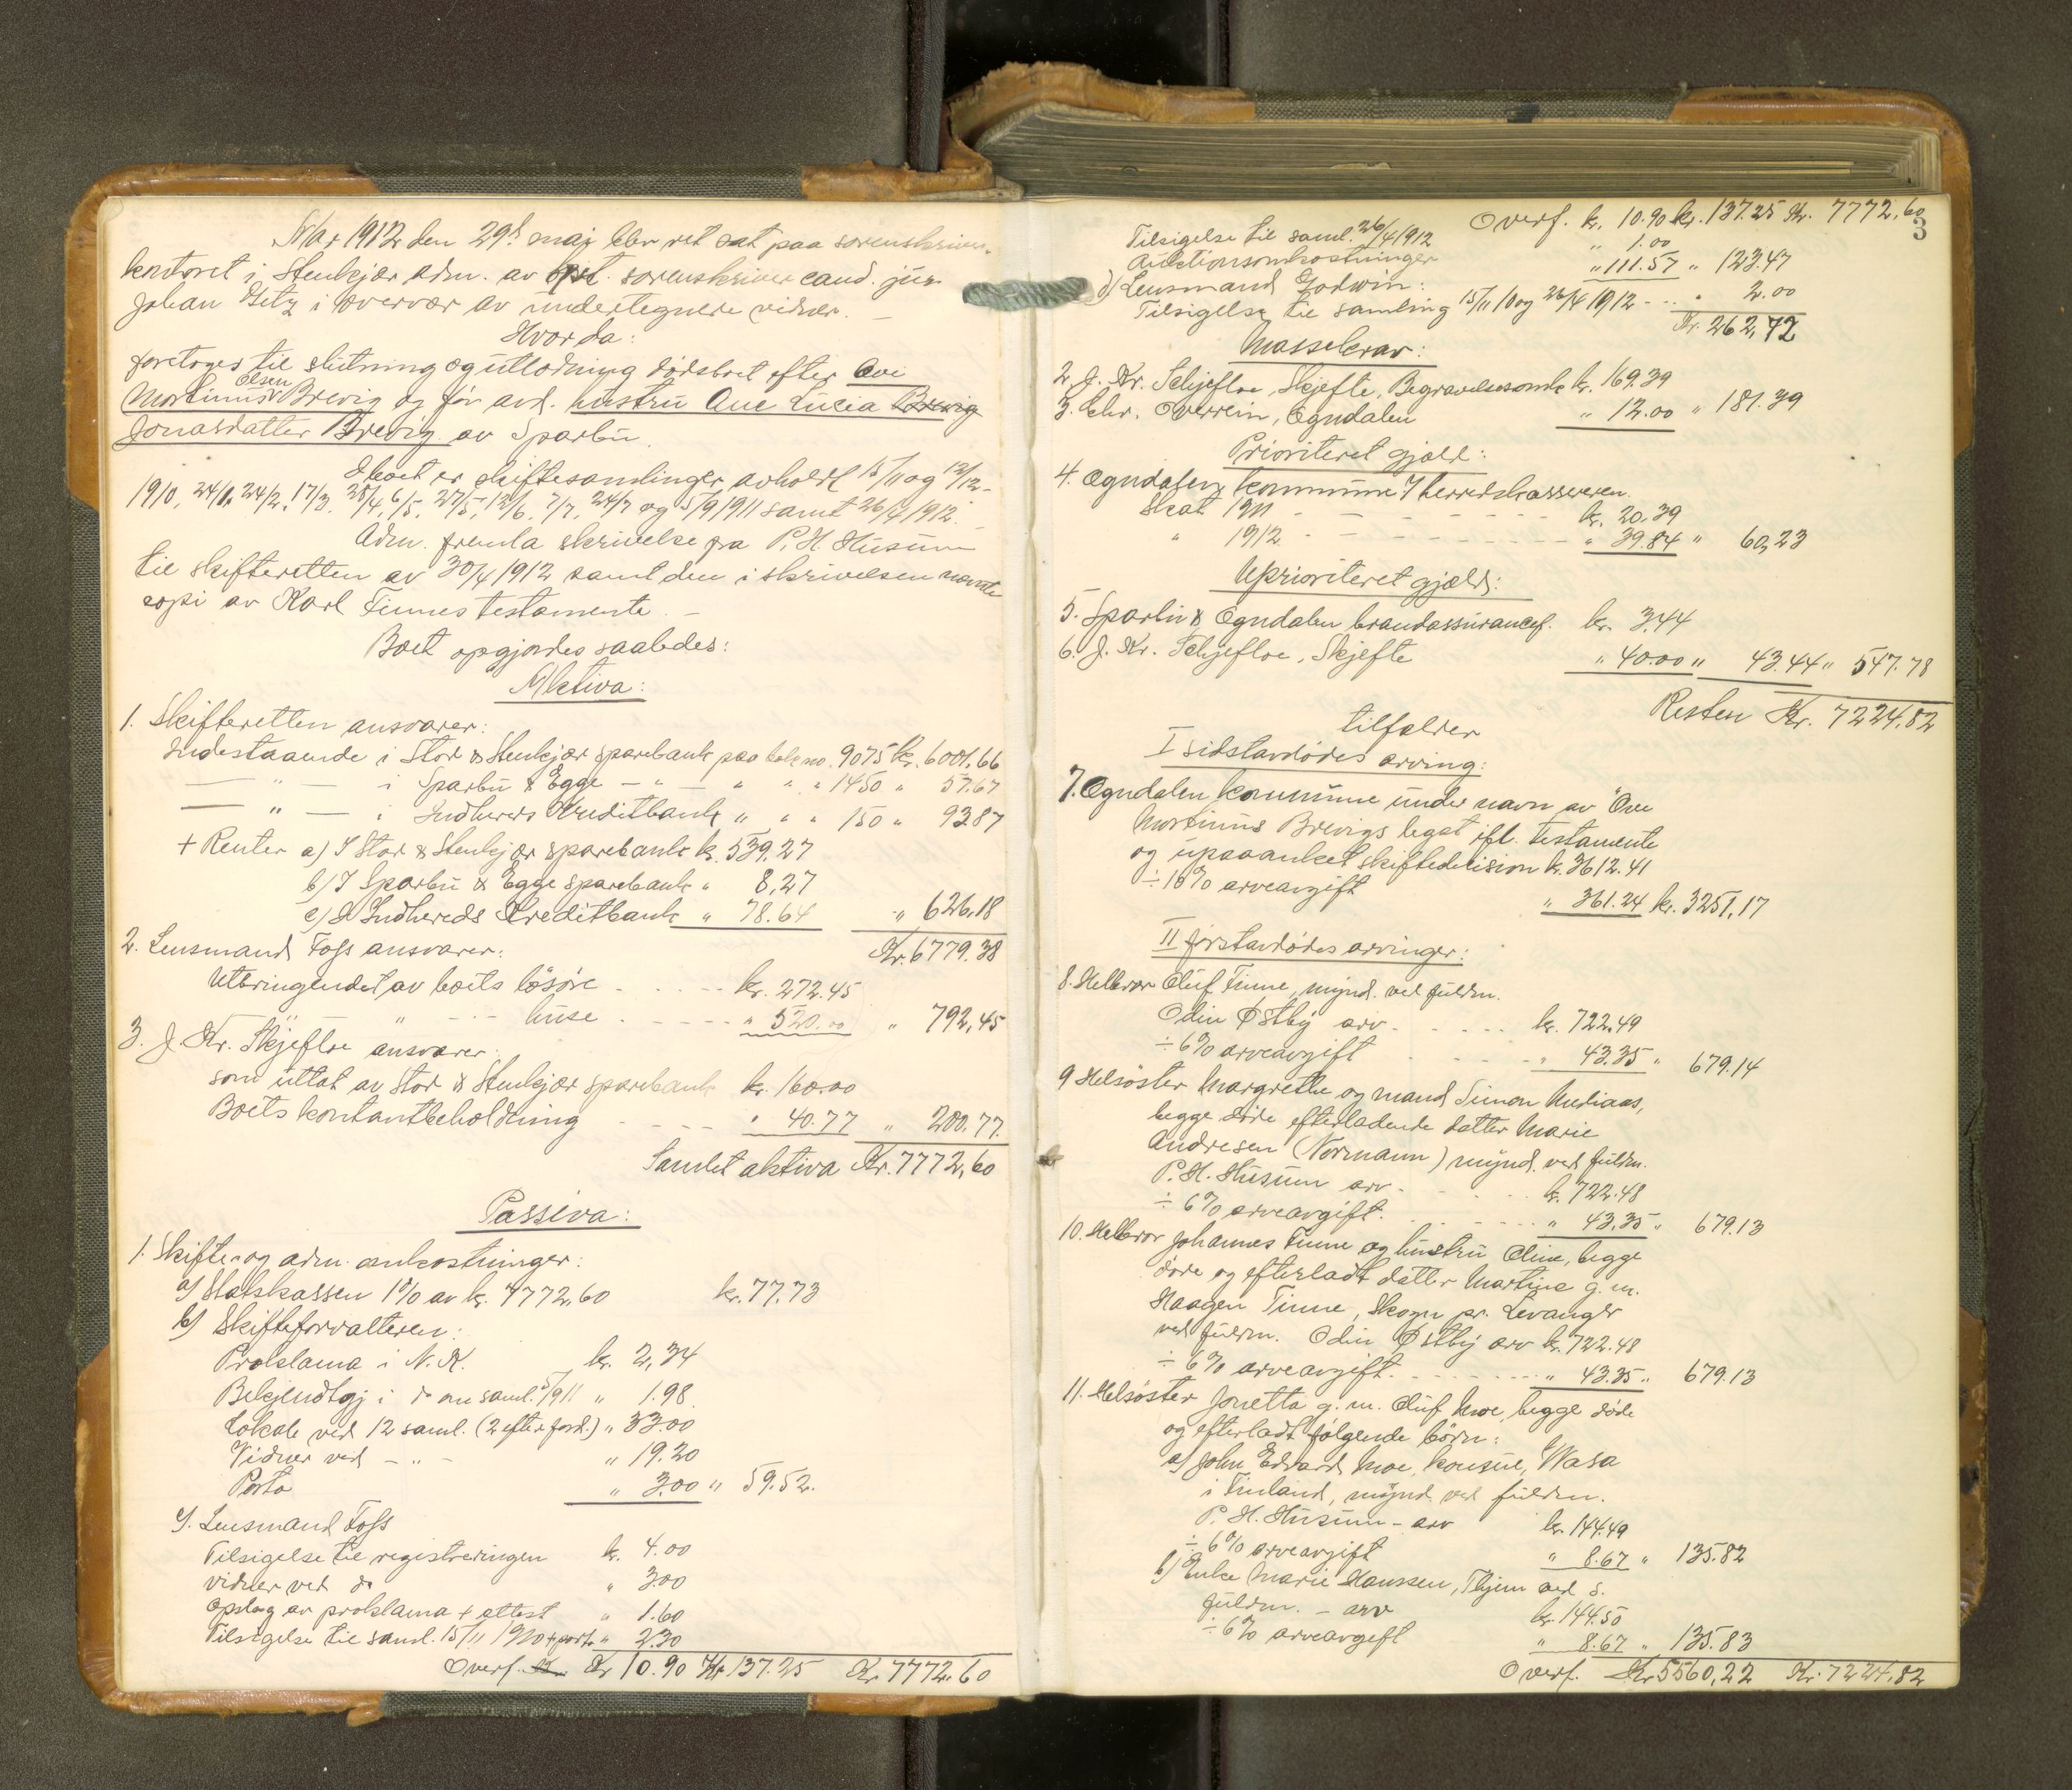 Aar 1912 den 29de maj blev ret sat paa sorenskriver-
kontoret i Stenkjær adm. av sorenskriver cand. jur.
Johan Getz i overvær av undertegnede vidner. —
Hvorda:
foretoges til slutning og utlodning dødsboet efter Ove
Mortinus Olsen Brevig og før avd. hustru Ane Lucia Brevig
Jonasdatter Brevig av Sparbu.
I boet er skiftesamlinger avholdt 15/11 og 12/12-
1910, 24/1, 24/2, 17/3, 28/4, 6/5, 27/5, 12/6, 7/7, 24/7 og 5/9 1911 samt 26/4 1912. —
Adm. fremla skrivelse fra P. H. Husum
til skifteretten av 30/4 1912 samt den i skrivelsen nævnte
copi av Karl Finnes testamente. —
Boet opgjordes saaledes:
Aktiva:
1. Skifteretten ansvarer:
Indestaaende i Stod & Stenkjær sparebank paa bok no. 9075 kr. 6001,66
— " — i Sparbu & Egge — " — " " " 1450 " 57.67
— " — i Indhereds Kreditbank " " " 150 " 93.87
+ Renter a) I Stod & Stenkjær sparebank k. 539,27
b) I Sparbu & Egge sparebank " 8,27
c) I Indhereds Kreditbank " 78.64 " 626,18
Kr. 6779.38
2. Lensmand Foss ansvarer:
Utbringendet av boets løsøre - - - - - kr. 272.45
" " - - huse - - - - - " 520.00 " 792,45
3. J. Kr. Skjefloe ansvarer:
som uttat av Stod & Stenkjær sparebank kr. 160.00
Boets kontantbeholdning - - - - " 40.77 " 200.77.
Samlet aktiva Kr. 7772,60
Passiva:
1. Skifte- og adm. omkostninger:
a) Statskassen 1% av kr. 7772,60 kr. 77.73
b) Skifteforvalteren:
Proklama i N. K. kr. 2,34
Bekjendtgj. i do om saml. 5/9 11 " 1.98
Lokale ved 12 saml. (2 efter ford.) " 33.00
Vidner ved - " - " 19.20
Porto " 3.00 " 59.52.
c). Lensmand Foss
Tilsigelse til registreringen k. 4.00
vidner ved do " 3.00
Opslag av proklama + attest " 1.60
Tilsigelse til saml. 15/11 1910 + port. " 2.30
Overf. Kr 10.90 Kr. 137.25 Kr. 7772,60
3
Overf. k. 10.90 kr. 137.25 Kr. 7772,60
Tilsigelse til saml. 26/4 1912 " 1.00
Auktionsomkostninger " 111.57 " 123.47
d) Lensmand Godwin:
Tilsigelse til samling 15/11 10 og 26/4 1912 - - . " 2.00
Kr. 262,72
Massekrav:
2. J. Kr. Schjefloe, Skjefte, Begravelsesomk. kr. 169.39
3. Chr. Overrein, Ogndalen " 12.00 " 181.39
Prioriteret gjæld:
4. Ogndalens kommune v/ herredskassereren.
Skat 1911 - - - - - - - kr. 20,39
" 1912 - - - - - - - " 39.84 " 60,23
Uprioriteret gjæld:
5. Sparbu & Ogndalen brandassurancef. kr. 3,44
6. J. Kr. Schjefloe, Skjefte " 40.00 " 43.44 " 547.78
Resten Kr. 7224.82
tilfalder
I sidstavdødes arving:
7. Ogndalen kommune under navn av "Ove
Mortinus Brevigs legat ifl. testamente
og upaaanket skiftedecision k. 3612.41
÷ 10% arveavgift " 361.24 kr. 3251,17
II førstavdødes arvinger:
8. Helbror Oluf Finne, mynd. ved fuldm.
Odin Østby arv - - - - - kr. 722.49
÷ 6% arveavgift - - - - " 43.35 " 679.14
9 Helsøster Margrethe og mand Simon Mediaas,
begge døde efterladende datter Marie
Andresen (Normann) mynd. ved fuldm.
P. H. Husum arv - - - - k. 722.48
÷ 6% arveavgift. - - - - - " 43,35 " 679.13
10. Helbror Johannes Finne og hustru Oline, begge
døde og efterladt datter Martine g. m.
Haagen Finne, Skogn pr. Levanger
ved fuldm. Odin Østby arv kr. 722.48
÷ 6% arveavgift. - - - - - - " 43.35 " 679.13
11. Helsøster Jonetta g. m. Oluf Moe, begge døde
og efterladt følgende børn:
a) John Edvard Moe, konsul, Wasa
i Finland, mynd. ved fuldm.
P. H. Husum - arv kr. 144.49
÷ 6% arveavgift " 8.67 " 135.82
b) Enke Marie Hanssen, Thjem ved s.
fuldm. - arv kr. 144.50
÷ 6% arveavgift " 8.67 " 135.83
Overf. Kr. 5560,22 Kr. 7224,82